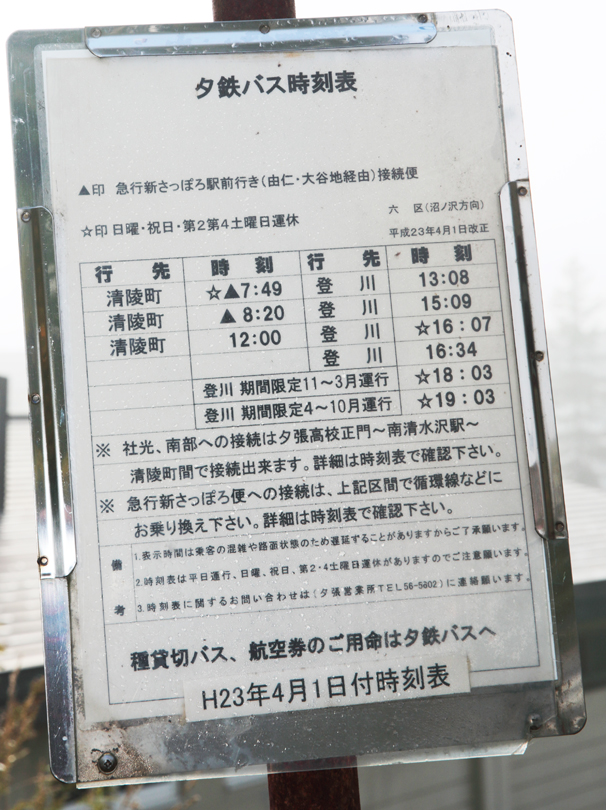 夕鉄バス時刻表
▲印 急行新さっぽろ駅前行き(由仁・大谷地経由)接続便
六 区(沼ノ沢方向)
☆印 日曜・祝日・第2第4土曜日運休
平成23年4月1日改正
行 先 時 刻 行 先 時 刻
清陵町 ☆▲7:49 登 川 13:08
清陵町 ▲ 8:20 登 川 15:09
清陵町 12:00 登 川 ☆16:07
登 川 16:34
登川 期間限定11~3月運行 ☆18:03
登川 期間限定4~10月運行 ☆19:03
※ 社光、南部への接続は夕張高校正門~南清水沢駅~
清陵町間で接続出来ます。詳細は時刻表で確認下さい。
※ 急行新さっぽろ便への接続は、上記区間で循環線などに
お乗り換え下さい。詳細は時刻表で確認下さい。
備考
1.表示時間は乗客の混雑や路面状態のため遅延することがありますからご了承願います。
2.時刻表は平日運行、日曜、祝日、第2・4土曜日運休がありますのでご注意願います。
3.時刻表に関するお問い合わせは(夕張営業所TEL56-5802)に連絡願います。
種貸切バス、航空券のご用命は夕鉄バスへ
H23年4月1日付時刻表